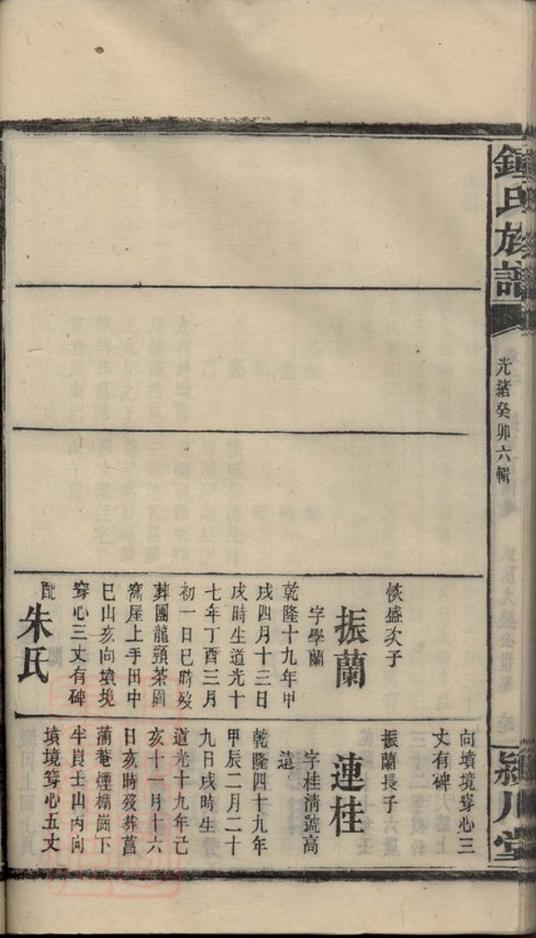 鍾氏族譜
光緒癸卯六輯
潁川堂
恢盛次子
振蘭
字學蘭
乾隆十九年甲
戌四月十三日
戌時生道光十
七年丁酉三月
初一日巳時歿
葬團龍頸茶園
窩屋上手田中
巳山亥向墳境
穿心三丈有碑
配
朱氏
向墳境穿心三
丈有碑
振蘭長子
連桂
字桂清號高
遠
乾隆四十九年
甲辰二月二十
九日戌時生
道光十九年己
亥十一月十六
日亥時歿葬菖
蒲菴煙棚崗下
半艮土山丙向
墳境穿心五丈